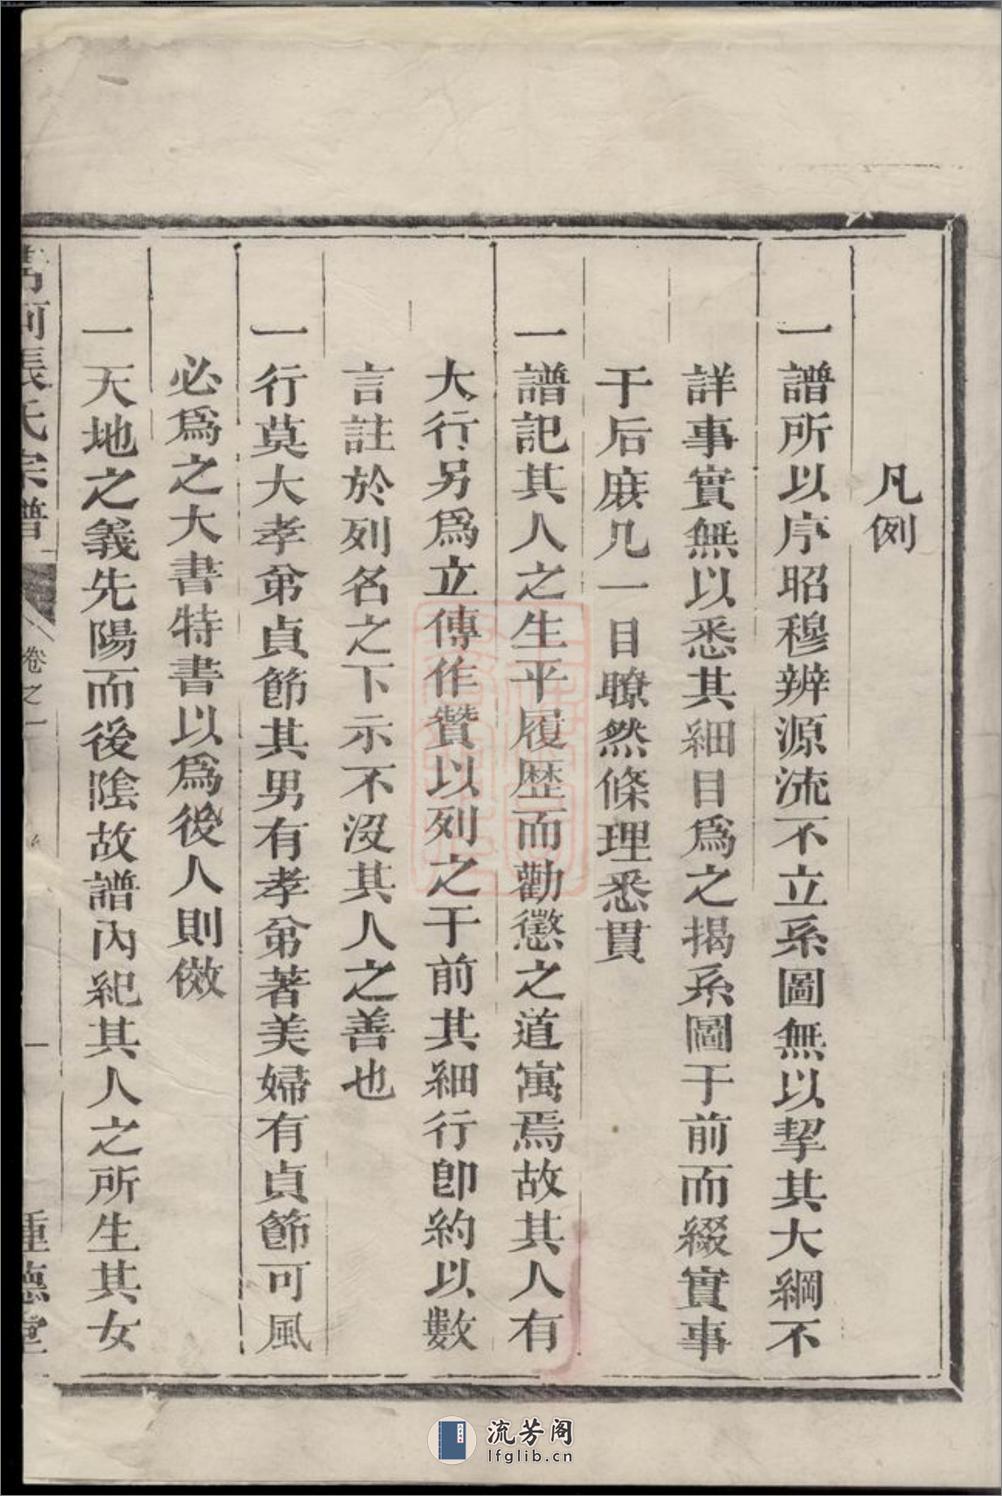 凡例
一譜所以序昭穆辨源流不立系圖無以挈其大綱不
詳事實無以悉其細目爲之揭系圖于前而綴實事
于后庶几一目瞭然條理悉貫
一譜記其人之生平履歷而勸懲之道寓焉故其人有
大行另爲立傳作贊以列之于前其細行卽約以數
言註於列名之下示不沒其人之善也
一行莫大孝弟貞節其男有孝弟著美婦有貞節可風
必爲之大書特書以爲後人則傚
一天地之義先陽而後陰故譜內紀其人之所生其女
河張氏宗譜
卷之一
一
種德堂
流芳阁
lfglib.cn